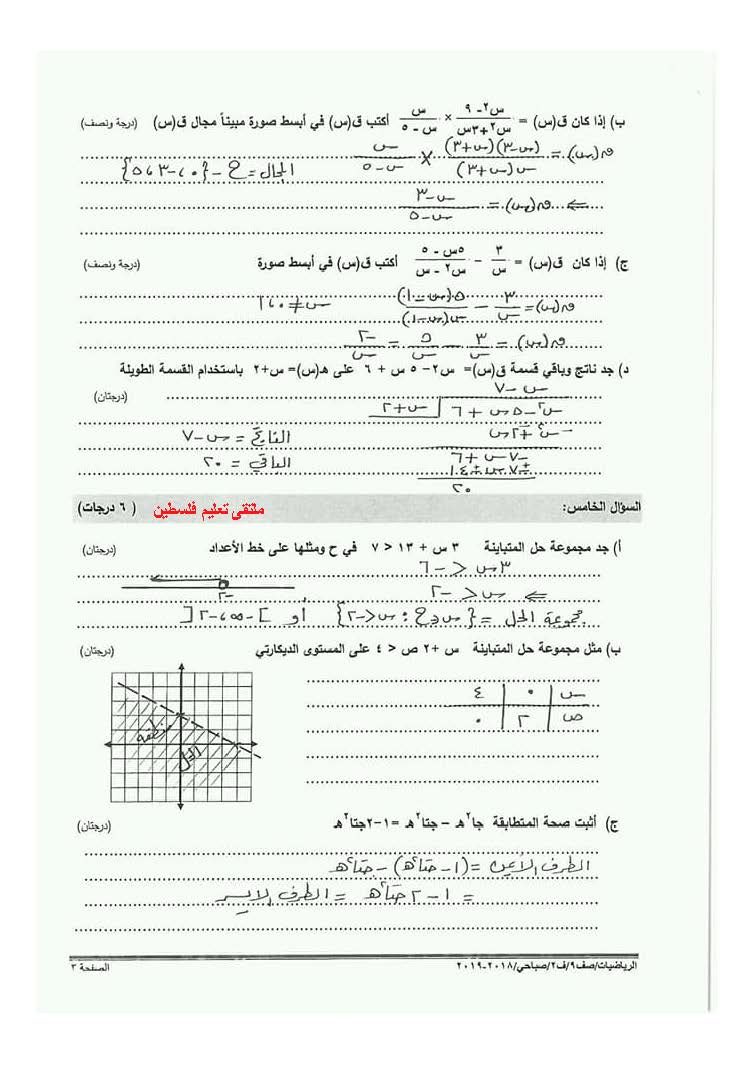 ب) إذا كان ق(س) = (س٢ - ٩)/(س٢ + ٣س) × س/(س - ٥) أكتب ق(س) في أبسط صورة مبيناً مجال ق(س) (درجة ونصف)
ق(س) = (س-٣)(س+٣)/س(س+٣) × س/(س-٥) المجال = ح - {٠، -٣، ٥}
⇐ ق(س) = (س-٣)/(س-٥)
ج) إذا كان ق(س) = ٣/س - (٥س - ٥)/(س٢ - س) أكتب ق(س) في أبسط صورة (درجة ونصف)
ق(س) = ٣/س - ٥(س-١)/س(س-١) س ≠ ٠، ١
ق(س) = ٣/س - ٥/س = -٢/س
د) جد ناتج وباقي قسمة ق(س)= س٢- ٥ س + ٦ على هـ(س)= س+٢ باستخدام القسمة الطويلة
س - ٧ (درجتان)
س٢ - ٥س + ٦ س + ٢
الناتج = س - ٧
-٧س + ٦
الباقي = ٢٠
٢٠
السؤال الخامس: ملتقى تعليم فلسطين ( ٦ درجات)
أ) جد مجموعة حل المتباينة ٣ س + ١٣ < ٧ في ح ومثلها على خط الأعداد (درجتان)
٣س < -٦
⇐ س < -٢ -٢
مجموعة الحل = {س ∈ ح : س < -٢} أو ]-∞، -٢[
ب) مثل مجموعة حل المتباينة س + ٢ ص < ٤ على المستوى الديكارتي (درجتان)
س ٠ ٤
ص ٢ ٠
منطقة الحل
ج) أثبت صحة المتطابقة جا٢هـ - جتا٢هـ = ١-٢جتا٢هـ (درجتان)
الطرف الأيمن = (١ - جتا٢هـ) - جتا٢هـ
= ١ - ٢ جتا٢هـ = الطرف الأيسر
الرياضيات/صف٩/ف٢/صباحي/٢٠١٨-٢٠١٩ الصفحة ٣